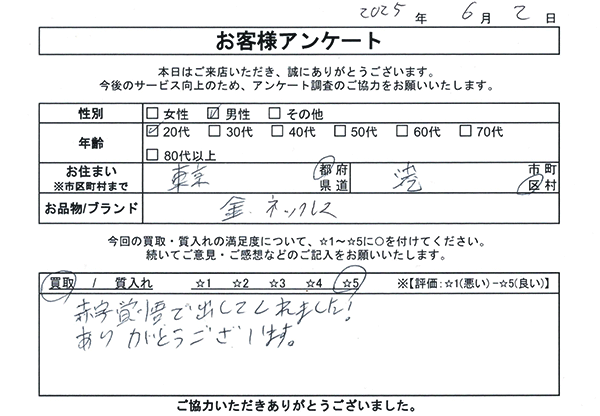 2025 年 6 月 2 日
お客様アンケート
本日はご来店いただき、誠にありがとうございます。
今後のサービス向上のため、アンケート調査のご協力をお願いいたします。
性別 □ 女性 ☑ 男性 □ その他
年齢 ☑ 20代 □ 30代 □ 40代 □ 50代 □ 60代 □ 70代
□ 80代以上
お住まい 東京 都 府 港 市 町
※市区町村まで 県 道 区 村
お品物/ブランド 金 ネックレス
今回の買取・質入れの満足度について、☆1～☆5に○を付けてください。
続いてご意見・ご感想などのご記入をお願いいたします。
買取 / 質入れ ☆1 ☆2 ☆3 ☆4 ☆5 ※【評価:☆1(悪い)−☆5(良い)】
赤字覚悟で出してくれました!
ありがとうございます。
ご協力いただきありがとうございました。